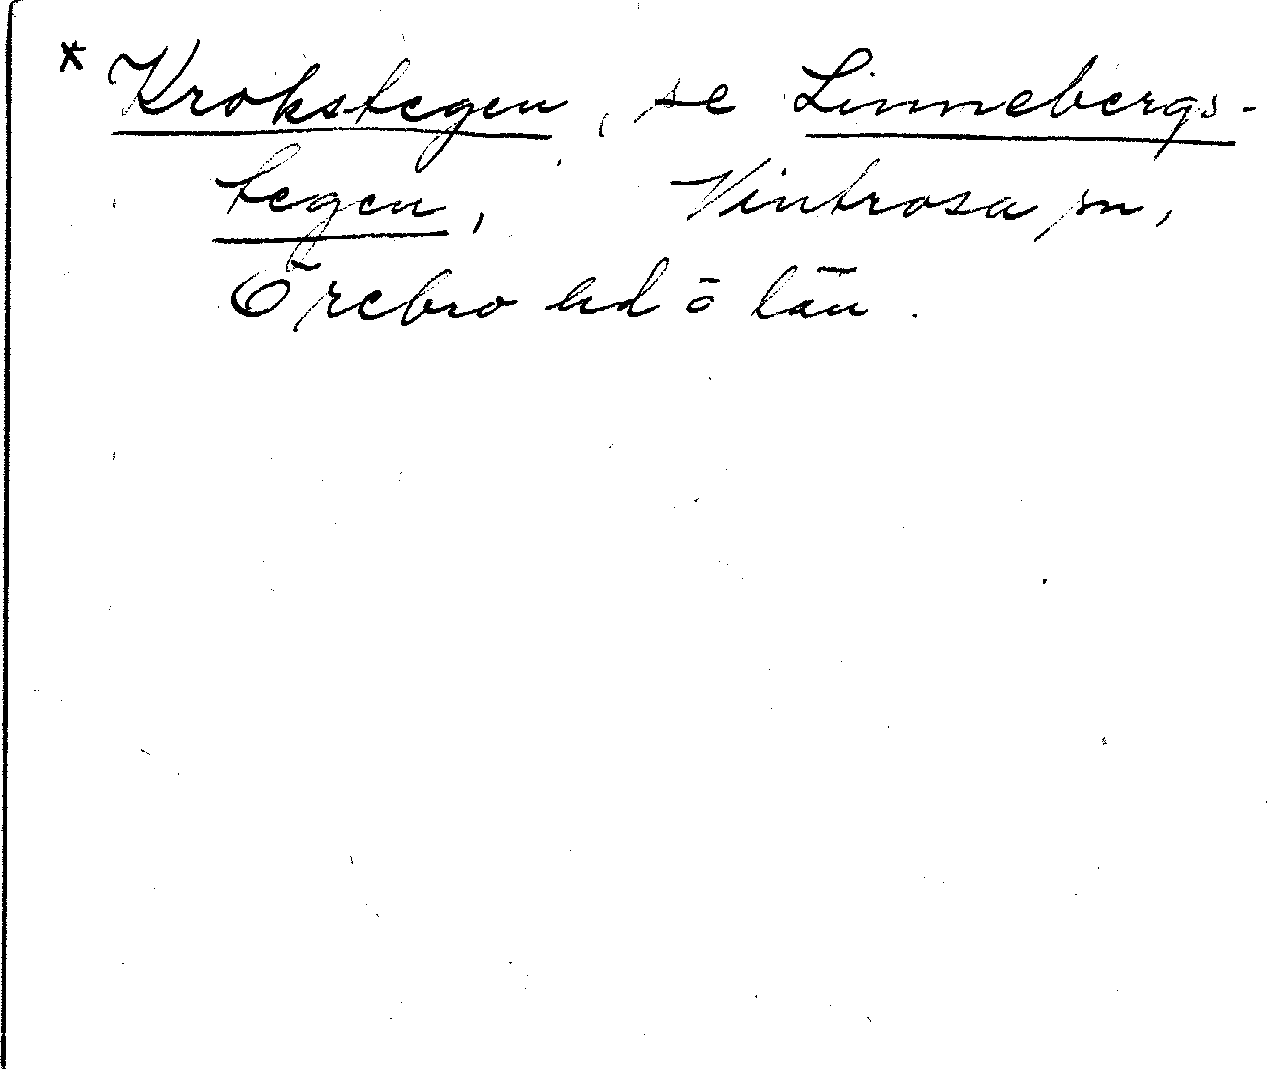 * Krokstegen, se Linnebergs-
tegen, Vintrosa sn,
Örebro hd o län.